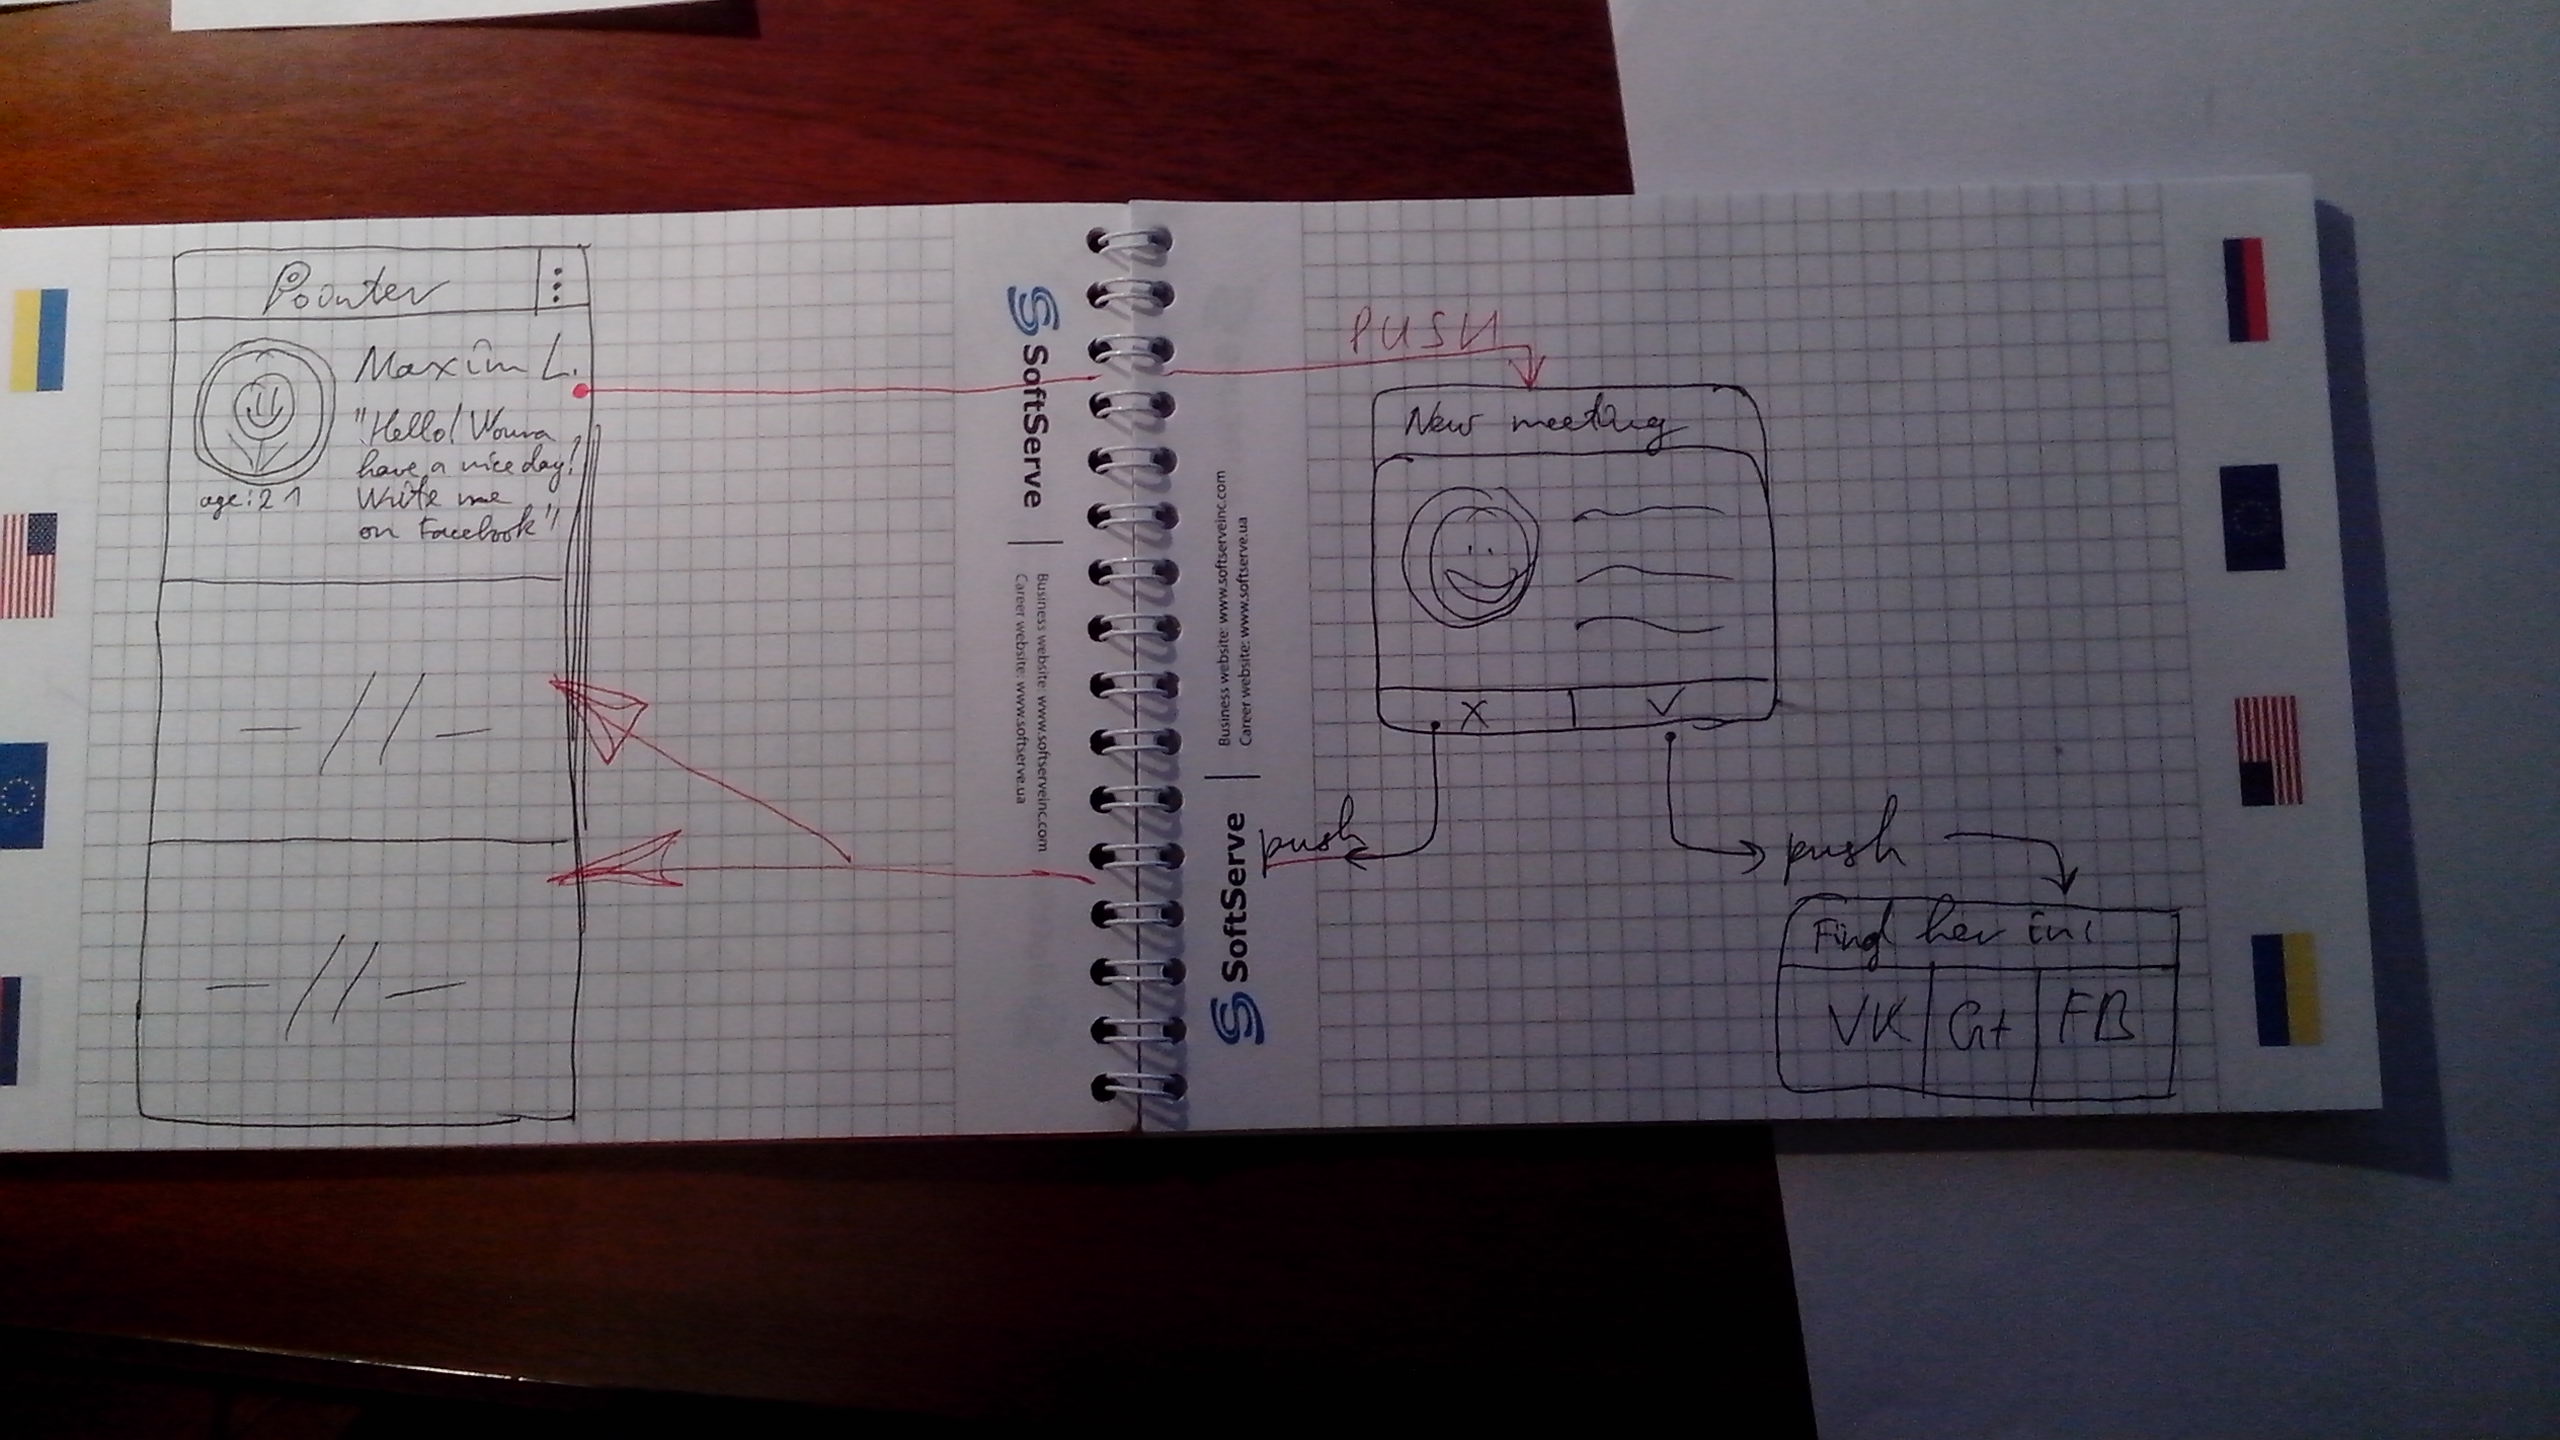 Pointer
Maxim L.
"Hello! Wonna
have a nice day!
Write me
on Facebook"
age: 21
SoftServe
Business website: www.softserveinc.com
Career website: www.softserve.ua
SoftServe
Business website: www.softserveinc.com
Career website: www.softserve.ua
PUSH
New meeting
X
push
push
Find her in:
VK
G+
FB